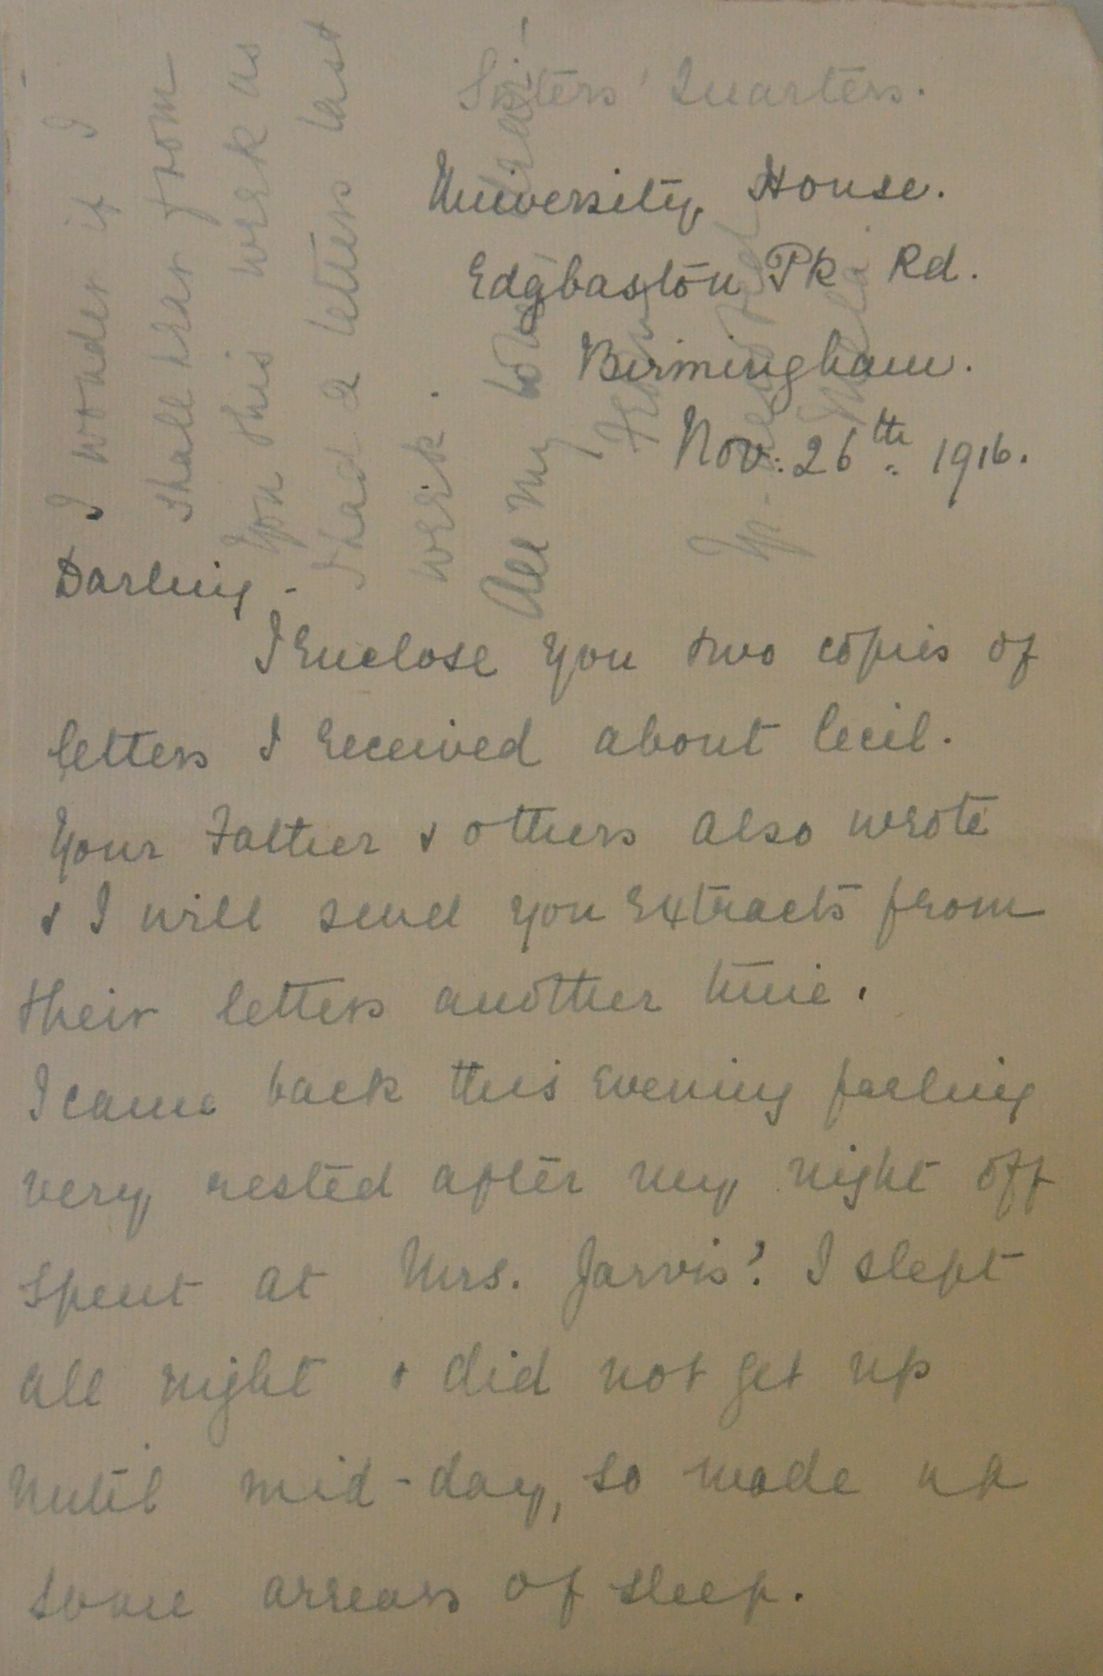 Sisters' Quarters.
University House.
Edgbaston Pk Rd.
Birmingham.
Nov: 26th. 1916.
Darling -
I enclose you two copies of
letters I received about Cecil.
Your Father & others also wrote
& I will send you extracts from
their letters another time.
I came back this evening feeling
very rested after my night off
spent at Mrs. Jarvis'. I slept
all night & did not get up
until mid-day, so made up
some arrears of sleep.
I wonder if I
shall hear from
you this week as
I had 2 letters last
week.
All my love
From